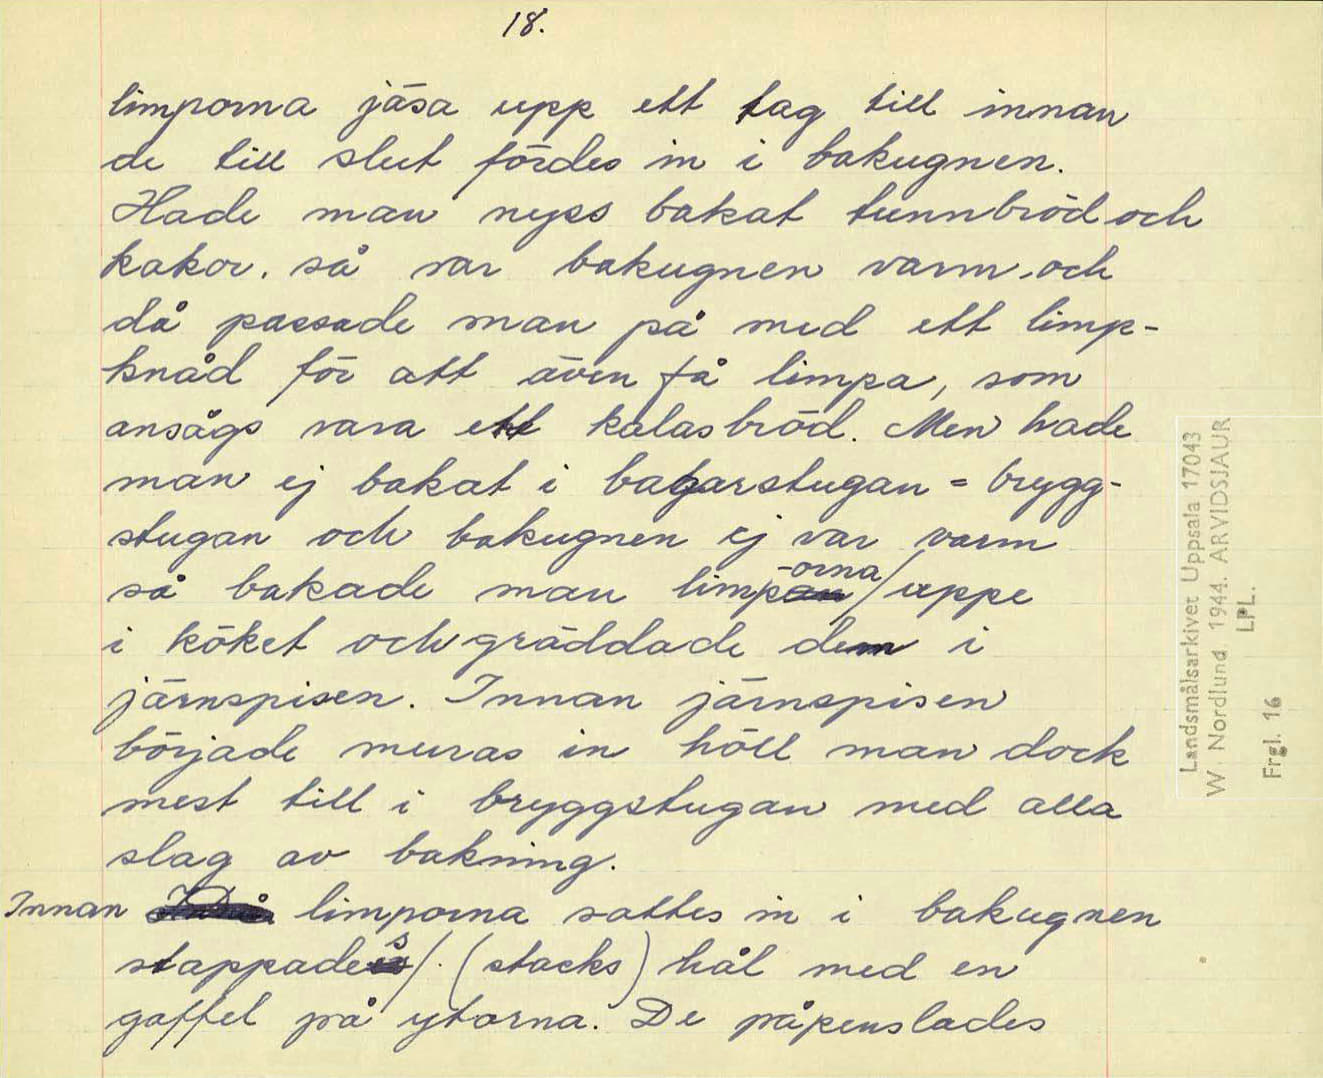 18.
limporna jäsa upp ett tag till innan
de till slut fördes in i bakugnen.
Hade man nyss bakat tunnbröd och
kakor, så var bakugnen varm, och
då passade man på med ett limp-
knåd för att även få limpa, som
ansågs vara ett kalasbröd. Men hade
man ej bakat i bagarstugan = brygg-
stugan och bakugnen ej var varm
så bakade man limporna / uppe
i köket och gräddade dem i
järnspisen. Innan järnspisen
började muras in höll man dock
mest till i bryggstugan med alla
slag av bakning.
Innan limporna sattes in i bakugnen
stappades /. (stacks) hål med en
gaffel på ytorna. De påpenslades
Landsmålsarkivet Uppsala 17043
W. Nordlund. 1944. ARVIDSJAUR
LPL.
Frgl. 16